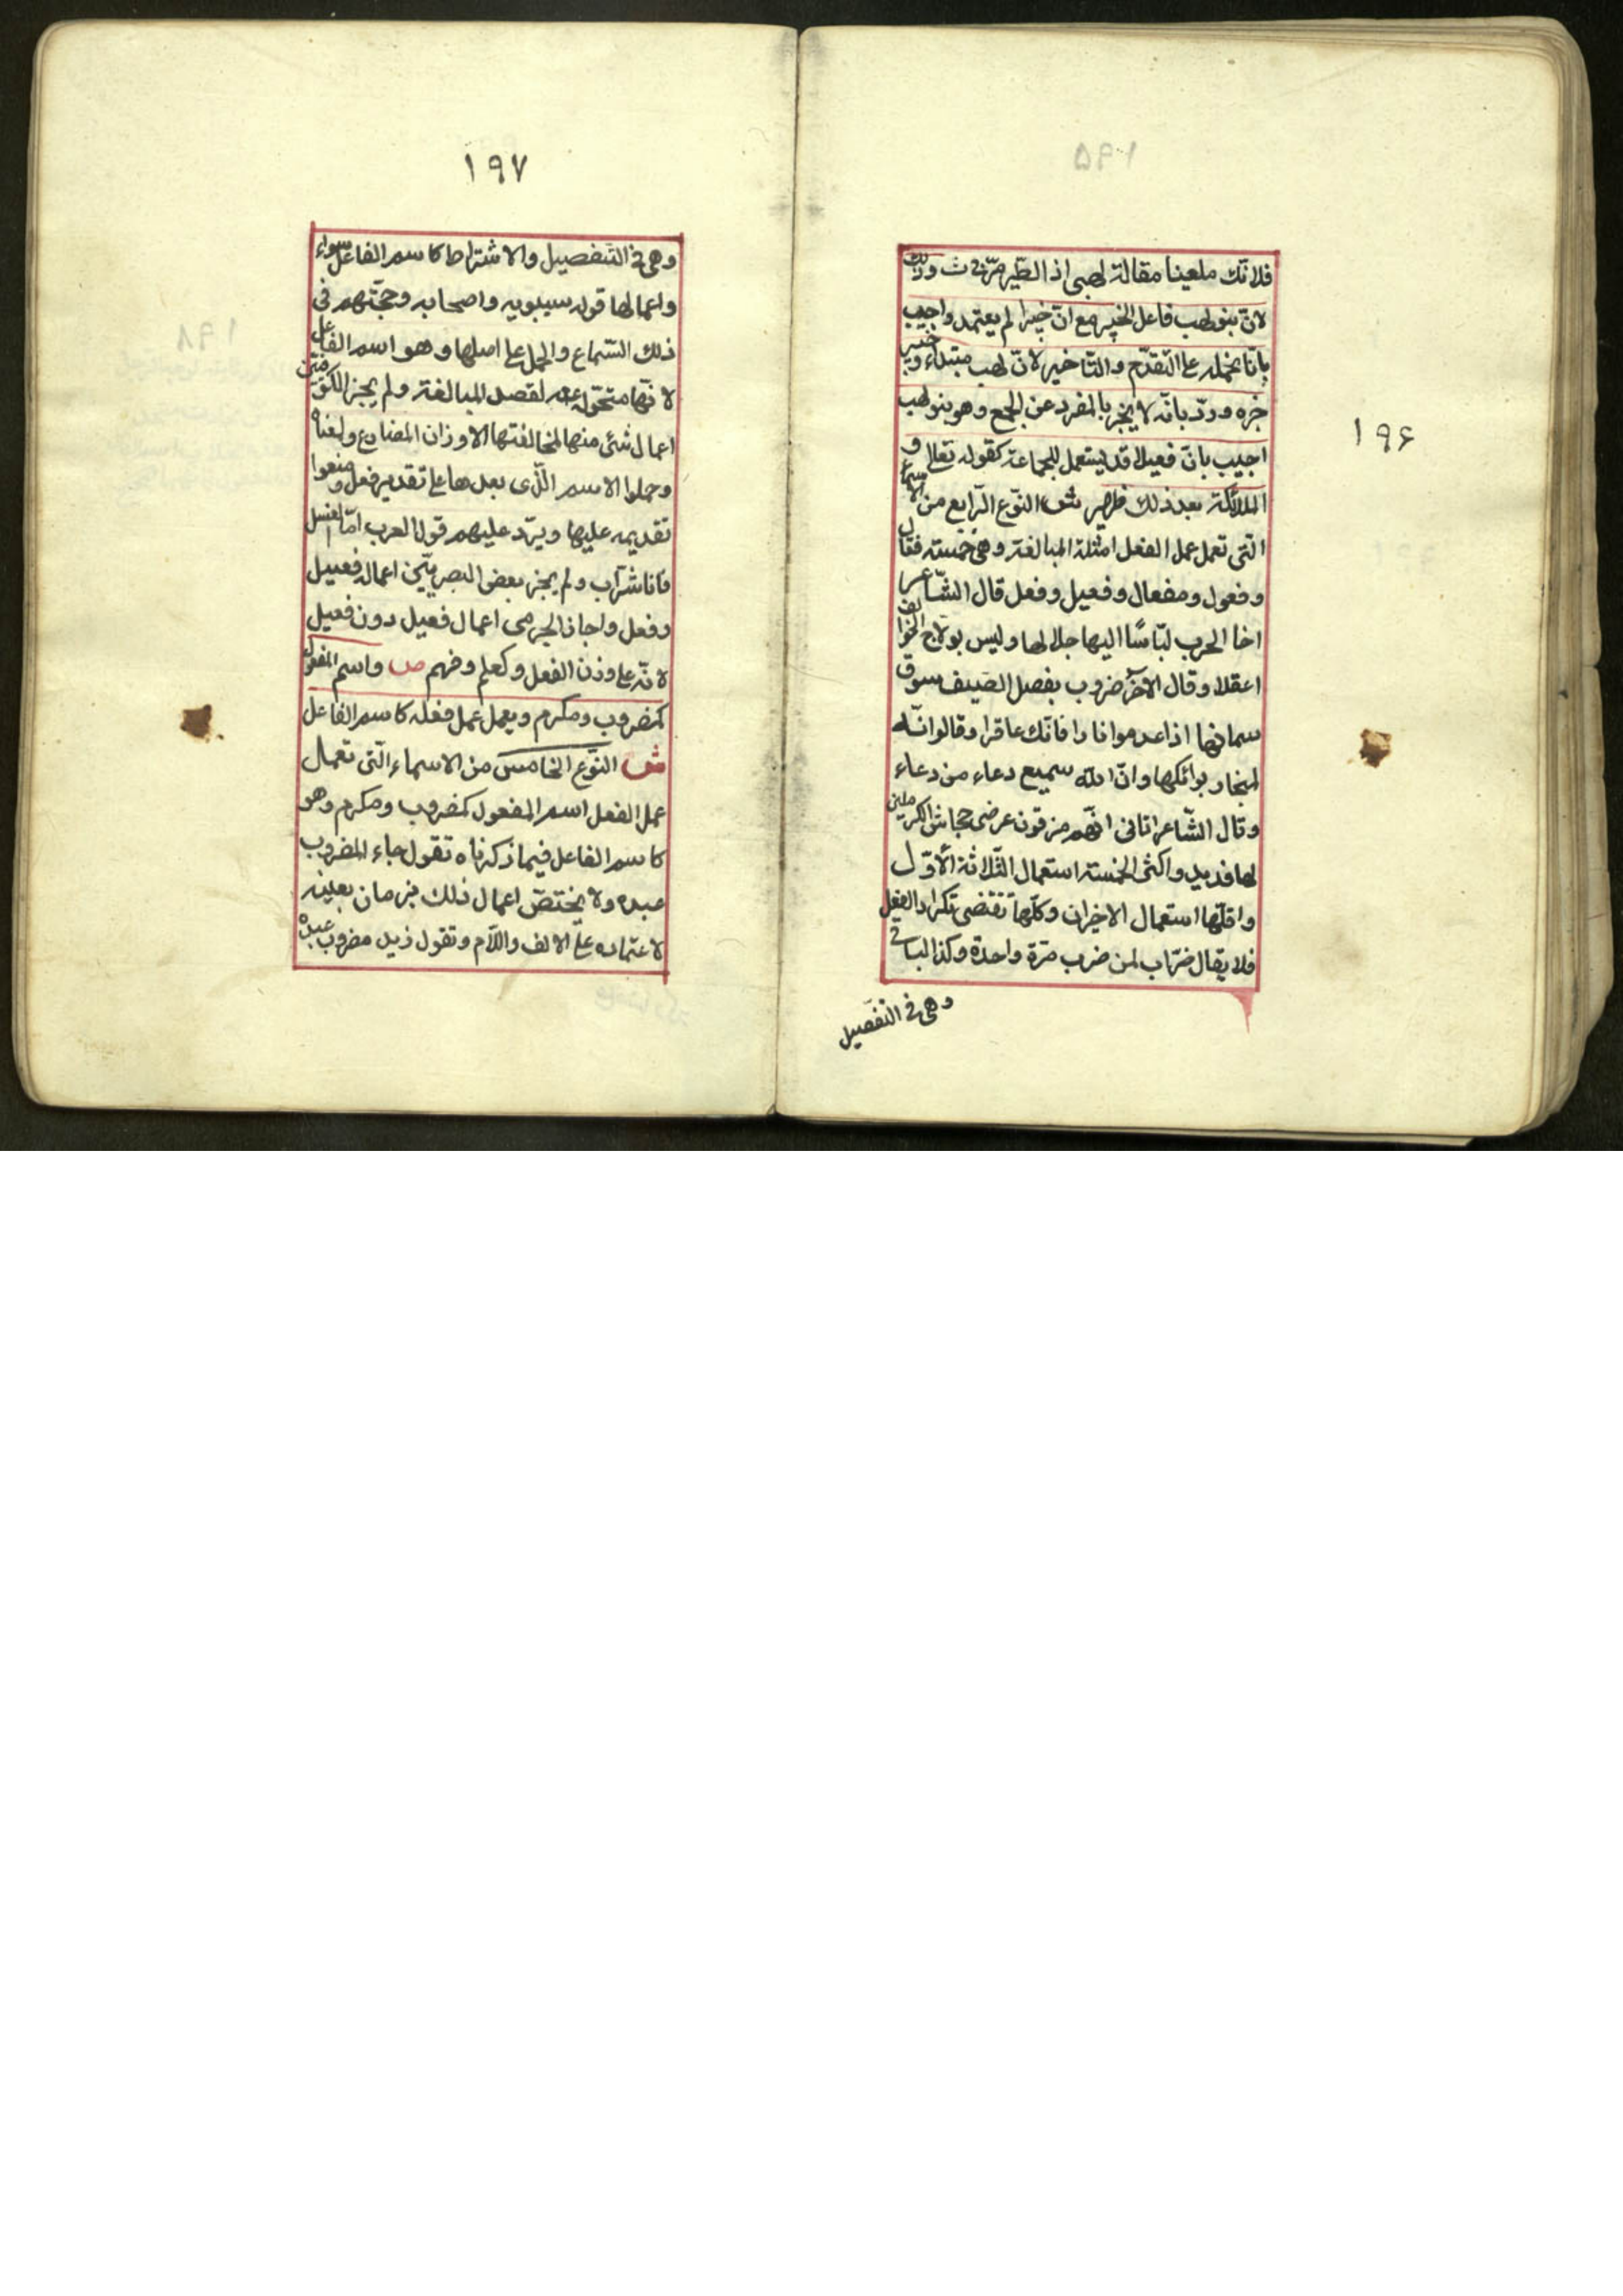 ١٩۶
فلاتك ملعينا مقالة لهبى اذا الطّير مرّت وذلك
لانّ بنو لهب فاعل الخبير مع انّ خبيرا لم يعتمد واجيب
بانّا نحمله على التّقدّم والتّاخير لانّ لهب مبتداء وخبير
خبره وردّ بانّه لا يخبر بالمفرد عن الجمع وهو بنو لهب
اجيب بانّ فعيلا قد يستعمل للجماعة كقوله تعالى و
الملائكة بعد ذلك ظهير ش النّوع الرّابع من الاسماء
الّتى تعمل عمل الفعل امثلة المبالغة وهى خمسة فعّال
وفعول ومفعال وفعيل وفعل قال الشّاعر
اخا الحرب لبّاسًا اليها جلالها وليس بولاج الخوالف
اعقلا وقال الاخر ضروب بفصل السّيف سوق
سمانها اذا عدموا زادا فانّك عاقر وقالوا انّه
لمنحار بوائكها وانّ الله سميع دعاء من دعاء
وقال الشّاعر اتانى انّهم مزقون عرضى جحاش الكرملين
لها فديد واكثر الخمسة استعمال الثّلاثة الاوّل
واقلّها استعمال الاخيران وكلّها تقتضى تكرار الفعل
فلا يقال ضرّاب لمن ضرب مرّة واحدة وكذا الباقى
وهى فى التفصيل
١٩٧
وهى فى التّفصيل والاشتراط كاسم الفاعل سواء
واعمالها قول سيبويه واصحابه وحجّتهم فى
ذلك السّماع والحمل على اصلها وهو اسم الفاعل
لانّها متحوّلة عنه لقصد المبالغة ولم يجز الكوفيّين
اعمال شئ منها لمخالفتها الاوزان المضارع ولمعناه
وحملوا الاسم الّذى بعدها على تقدير فعل ومنعوا
تقديمه عليها ويردّ عليهم قول العرب امّا العسل
فانا شرّاب ولم يجز بعض البصريّين اعمال فعيل
وفعل واجاز الجرمى اعمال فعيل دون فعيل
لانّه على وزن الفعل وكعلم وفهم ص واسم المفعول
كمضروب ومكرم ويعمل عمل فعله كاسم الفاعل
ش النّوع الخامس من الاسماء الّتى تعمال
عمل الفعل اسم المفعول كمضروب ومكرم وهو
كاسم الفاعل فيما ذكرناه تقول جاء المضروب
عبده ولا يختصّ اعمال ذلك بزمان بعينه
لاعتماده على الالف واللّام وتقول زيد مضروب عبده